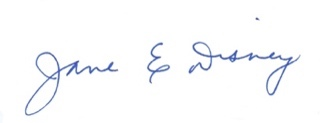 Jane E Disney